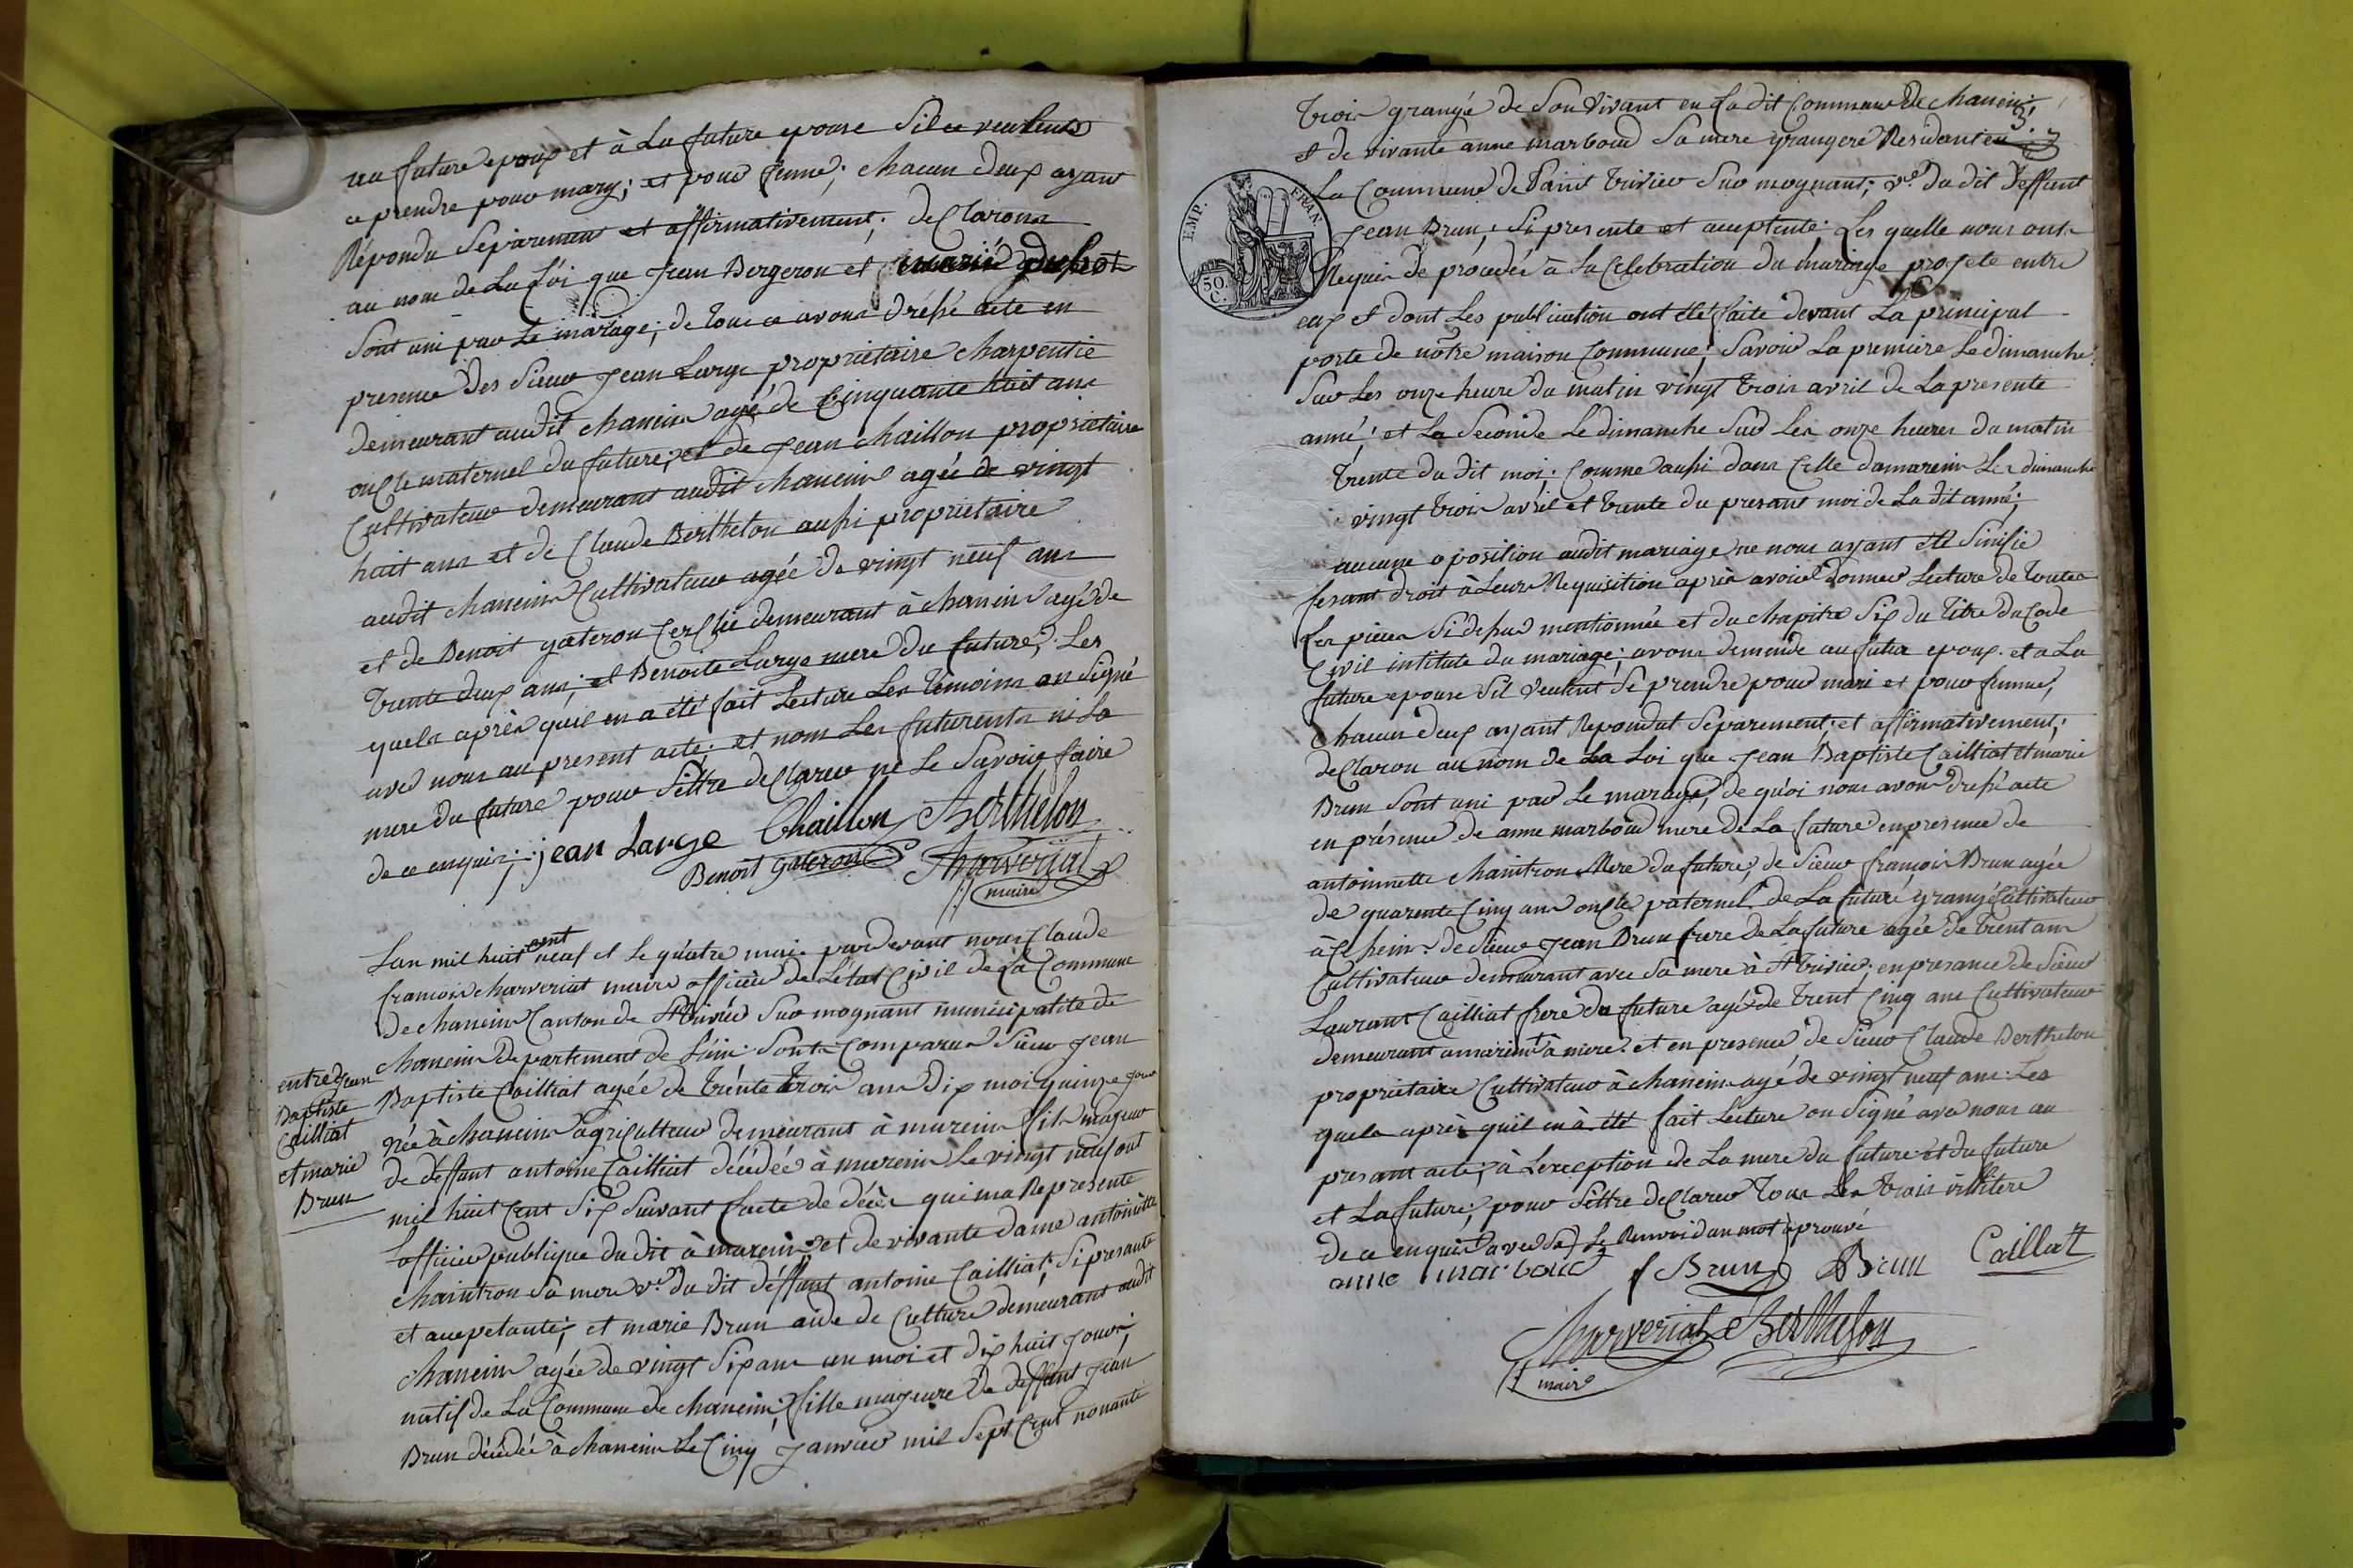 au future epoux et à La future epouse Sil ce veulents
ce prendre pour mary; et pour femme; chacun deux ayant
Répondu Séparemans et affirmativement; deClarons
au nom de La Loi que Jean Bergeron et marié
Sont uni par Le mariage; de tout ce avons dréssé acte en
presence des Sieur Jean Large proprietaire charpentie
demeurant audit chanein agé de Cinquante huit ans
oncle maternel du future; et de Jean chaillon proprietaire
Cultivateur demeurant audit chanein agée de vingt
huit ans et de Claude Berthelon aussi proprietaire
audit chanein Cultivateur agée de vingt neuf ans
et de Benoit gateron demeurant à chanein agé de
trente deux ans; et Benoite Large mere du future; Les
quels après quil en a été fait Lecture Les temoins on Signé
avec nous au present acte; et nom Les futurents ni La
mere du future pour Sêttre deClarer ne Le Savoir faire
de ce enquis; jean Large Chaillon Berthelon
Benoit gateron Charveriat
maire
Lan mil huit cent neuf et le quatre mai pardevant nous Claude
francois charveriat maire officier de Létat Civil de La Commune
de chanein Canton de St trivier Sur mognant municipalité de
chanein departement de Lain Sont Comparus Sieur Jean
Baptiste Cailliat agée de trénte trois ans dix moi quinze jour
née à chanein agriculteur demeurant à mareins fils majeur
de déffunt antoine Cailliat décédée à mareins Le vingt neuf out
mil huit Cent Six Suivant Lacte de décès qui ma Representé
Lofficier publique du dit à mareins; et de vivante dame antoinètte
chaintron Sa mere ve. du dit déffunt antoine Cailliat; Si presante
et accepetante; et marie Brun aide de Culture demeurant audit
chanein agée de vingt Six ans un moi et dix huit jours
natif de La Commune de chanein; fille majeure de deffunt Jean
Brun décédée à chanein Le Cinq Janvier mil Sept Cent nonante
entre Jean
Baptiste
Cailliat
et marie
Brun
3.
trois grangé de Son Vivant en La dit Commune de chanein;
et de vivante anne marboud Sa mere grangere Residante en
La Commune de Saint trivier Sur mognant; ve. du dit Deffunt
Jean Brun; Si presente et acceptente; Les quelle nous onts
Requis de procedée à La Celebration du mariage projeté entre
eux et dont Les publication ont été faite devant La principal
porte de notre maison Commune; Savoir La premiere Le dimanche
Sur Les onze heure du matin vingt trois avril de La presente
anné; et La Seconde Le dimanche Sur Les onze heures du matin
trente du dit moi; Comme aussi dans Celle damareins Les dimanche
vingt trois avril et trente du presant moi de La dit anné;
aucune oposition audit mariage ne nous ayant été Sinifié
fesant droit à Leurs Requisition après avoir donner Lecture de toutes
Les pieces Si dessus mentionnée et du chapitre Six du titre du Code
Civil intitulé du mariage; avons demande au futur epoux et a La
future epouse Sil veulent Se prendre pour mari et pour femme,
Chacun deux ayant Repondut Séparement; et affirmativement;
deClaron au nom de La Loi que Jean Baptiste Cailliat et marie
Brun Sont uni par Le mariage; de quoi nous avons dressé acte
en présence de anne marboud mere de La future en presence de
antoinnette chaintron Mere du future; de Sieur françois Brun agée
de quarente Cinq ans oncle paternel de La future grangé Cultivateur
à de Sieur Jean Brun frere de La future agée de trent ans
Cultivateur demeurant avec Sa mere à St trivier; en presance de Sieur
Laurant Cailliat frere du future agé de trent Cinq ans Cultivateur
demeurant amareins et en presence de Sieur Claude Berthelon
proprietaire Cultivateur à chanein agé de vingt neuf ans. Les
quels après quil en à été fait Lecture on Signé avec nous au
presant acte; à Lexception de La mere du future et du future
et La future; pour Sêttre deClarer tous Les trois illitere
de ce enquis avec Le Renvoi dun mot aprouvé
anne marboud f Brun Brun Cailliat
Charveriat Berthelon
maire
EMP. FRAN.
50 C.